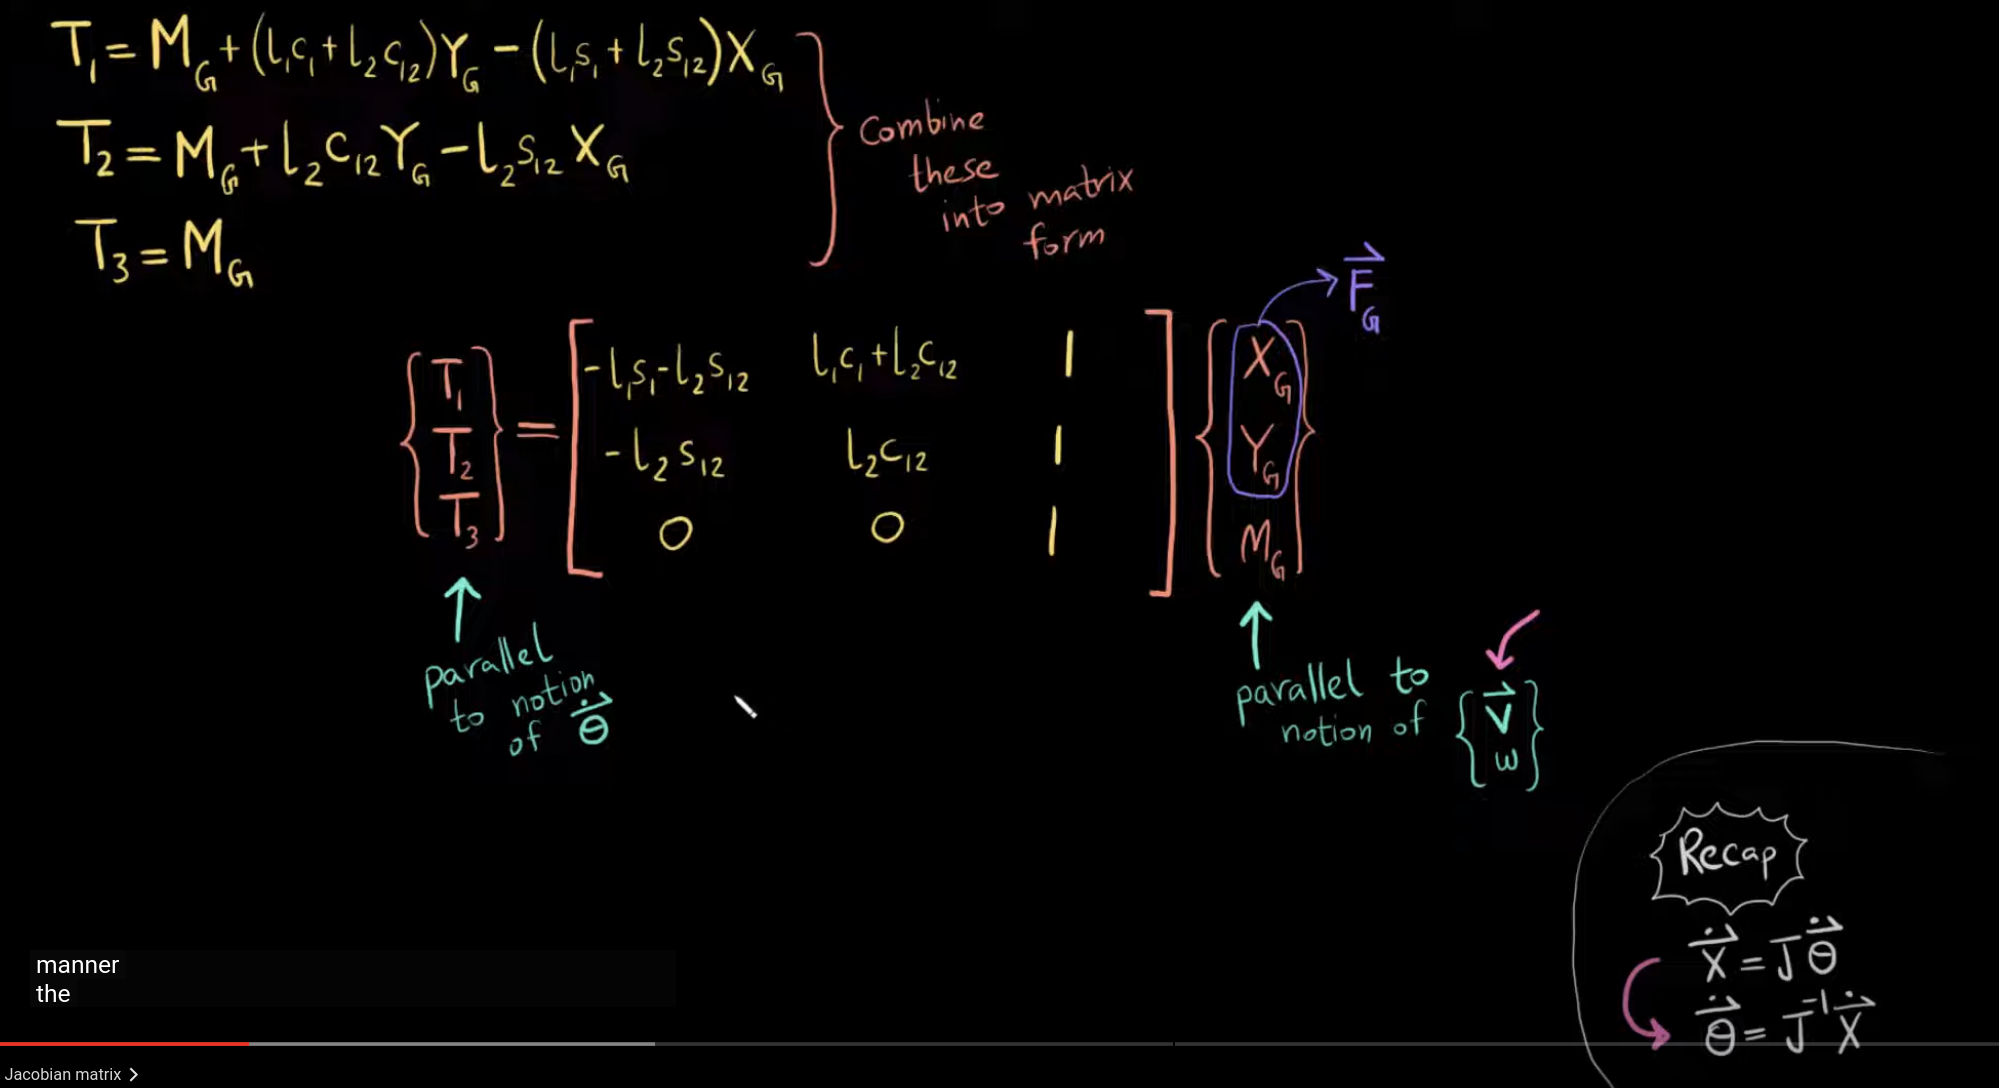 T₁ = M_G + (l₁c₁ + l₂c₁₂)Y_G - (l₁s₁ + l₂s₁₂)X_G
T₂ = M_G + l₂c₁₂Y_G - l₂s₁₂X_G
T₃ = M_G
Combine
these
into matrix
form
F_G
T₁ = -l₁s₁-l₂s₁₂ l₁c₁+l₂c₁₂ 1 X_G
T₂ -l₂s₁₂ l₂c₁₂ 1 Y_G
T₃ 0 0 1 M_G
parallel
to notion
of θ̇
parallel to
notion of { v
ω }
Recap
Ẋ = Jθ̇
θ̇ = J⁻¹Ẋ
manner
the
Jacobian matrix >